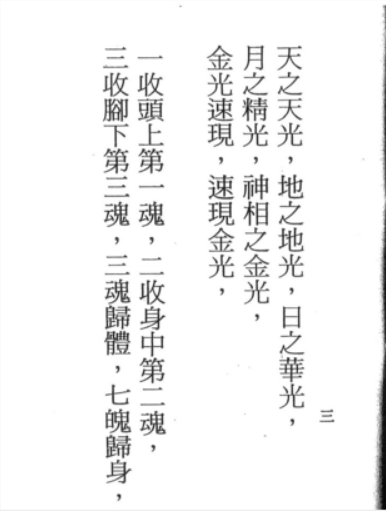 三
天之天光，地之地光，日之華光，
月之精光，神相之金光，
金光速現，速現金光，
一收頭上第一魂，二收身中第二魂，
三收腳下第三魂，三魂歸體，七魄歸身，